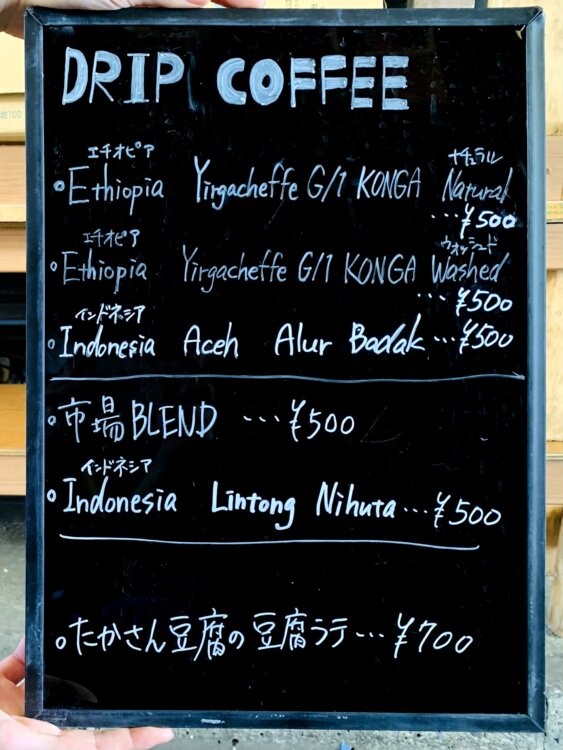 DRIP COFFEE
エチオピア ナチュラル
Ethiopia Yirgacheffe G/1 KONGA Natural
…¥500
エチオピア ウォッシュド
Ethiopia Yirgacheffe G/1 KONGA Washed
…¥500
インドネシア
Indonesia Aceh Alur Badak…¥500
市場BLEND …¥500
インドネシア
Indonesia Lintong Nihuta…¥500
たかさん豆腐の豆腐ラテ…¥700
地100